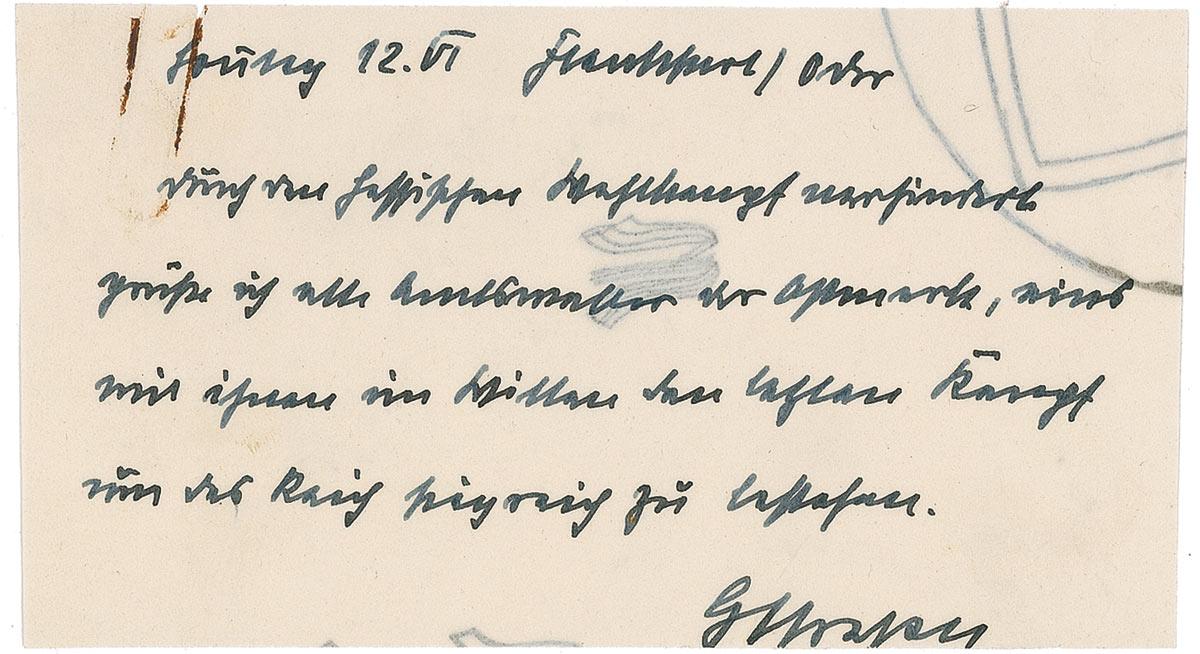 Sonntag 12.VI Frankfurt / Oder
durch den hessischen Wahlkampf verhindert
grüße ich alle Amtswalter der Ostmark, eins
mit ihnen im Willen den letzten Kampf
um das Reich siegreich zu bestehen.
G Strasser